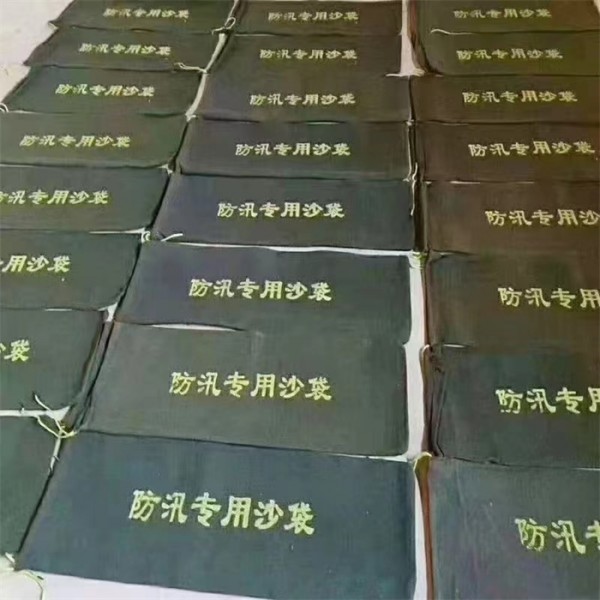 防汛专用沙袋
防汛专用沙袋
防汛专用沙袋
防汛专用沙袋
防汛专用沙袋
防汛专用沙袋
防汛专用沙袋
防汛专用沙袋
防汛专用沙袋
防汛专用沙袋
防汛专用沙袋
防汛专用沙袋
防汛专用沙袋
防汛专用沙袋
防汛专用沙
专用沙袋
防汛专用沙袋
防汛专用沙
袋
防汛专用沙袋
防汛专用
防汛专用沙袋
防汛专